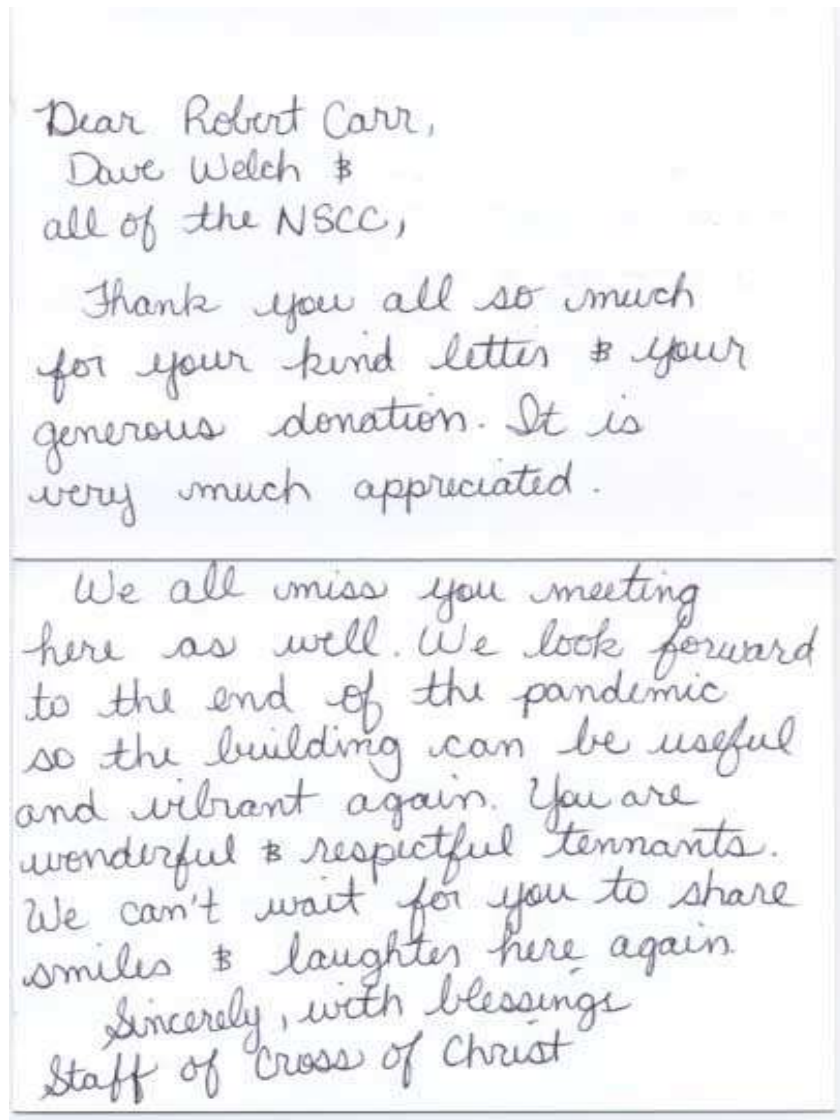 Dear Robert Carr,
Dave Welch &
all of the NSCC,
Thank you all so much
for your kind letter & your
generous donation. It is
very much appreciated.
We all miss you meeting
here as well. We look forward
to the end of the pandemic
so the building can be useful
and vibrant again. You are
wonderful & respectful tennants.
We can't wait for you to share
smiles & laughter here again.
Sincerely, with blessings
Staff of Cross of Christ